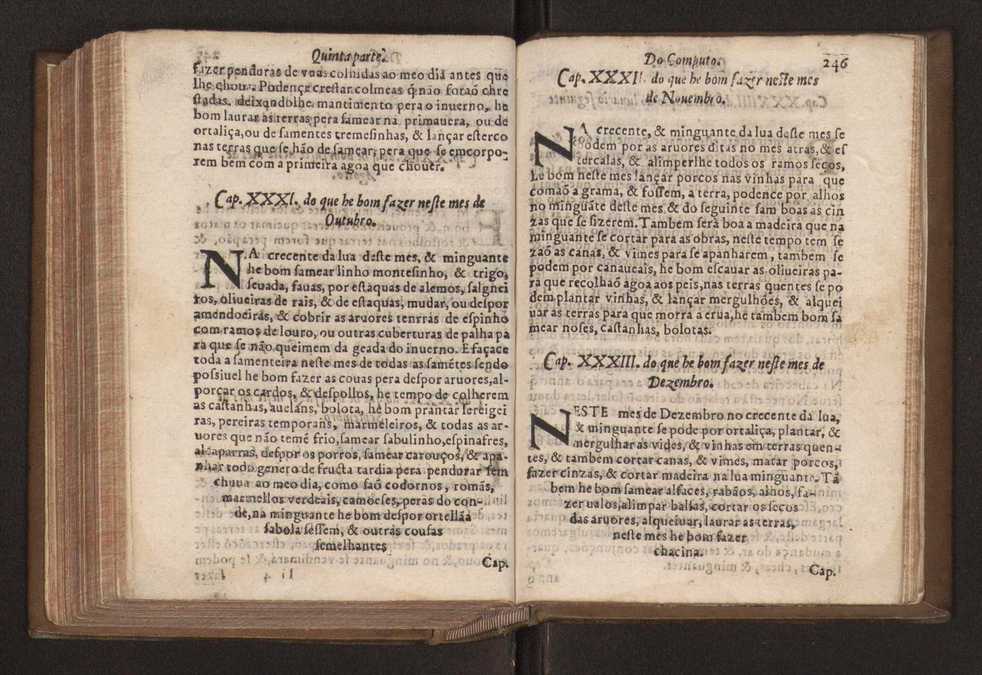 Quinta parte.
fazer penduras de vuas colhidas ao meo dia antes que
lhe choua. Podence crestar colmeas q̃ não foraõ chre
stadas, deixãdolhe mantimento pera o inuerno, he
bom laurar as terras pera samear na primauera, ou de
ortaliça, ou de samentes tremesinhas, & lançar esterco
nas terras que se hão de samear, pera que se emcorpo-
rem bem com a primeira agoa que chouer.
Cap. XXXI. do que he bom fazer neste mes de
Outubro.
NA crecente da lua deste mes, & minguante
he bom samear linho montesinho, & trigo,
seuada, fauas, por estaquas de alemos, salguei
ros, oliueiras de rais, & de estaquas, mudar, ou despor
amendoeiras, & cobrir as aruores tenrras de espinho
com ramos de louro, ou outras cuberturas de palha pa
ra que se não queimem da geada do inuerno. E façace
toda a samenteira neste mes de todas as samẽtes sendo
possiuel he bom fazer as couas pera despor aruores, al-
porçar os cardos, & despollos, he tempo de colherem
as castanhas, auelãns, bolota, he bom prantar sereigei
ras, pereiras temporans, marmeleiros, & todas as ar-
uores que não temẽ frio, samear sabulinho, espinafres,
alcaparras, despor os porros, samear carouços, & apa-
nhar todo genero de fructa tardia pera pendurar sem
chuua ao meo dia, como saõ codornos, romãs,
marmellos verdeais, camoeses, peras do con-
de, na minguante he bom despor ortellãa
sabola sessem, & outras cousas
semelhantes
Ii 4
Cap.
Do Computo.
246
Cap. XXXII. do que he bom fazer neste mes
de Nouembro.
NA crecente, & minguante da lua deste mes se
podem por as aruores ditas no mes atras, & es
tercalas, & alimperlhe todos os ramos secos,
he bom neste mes lançar porcos nas vinhas para que
comaõ a grama, & fossem, a terra, podence por alhos
no minguãte deste mes & do seguinte sam boas as cin
zas que se fizerem. Tambem serà boa a madeira que na
minguante se cortar para as obras, neste tempo tem se
zaõ as canas, & vimes para se apanharem, tambem se
podem por canaueais, he bom escauar as oliueiras pa-
ra que recolhaõ agoa aos pẽis, nas terras quentes se po
dem plantar vinhas, & lançar mergulhões, & alquei
uar as terras para que morra a erua, he tambem bom sa
mear noses, castanhas, bolotas.
Cap. XXXIII. do que he bom fazer neste mes de
Dezembro.
NESTE mes de Dezembro no crecente da lua,
& minguante se pode por ortaliça, plantar, &
mergulhar as vides, & vinhas em terras quen-
tes, & tambem cortar canas, & vimes, matar porcos,
fazer cinzas, & cortar madeira na lua minguante. Tã
bem he bom samear alfaces, rabãos, alhos, fa-
zer ualos, alimpar balsas, cortar os secos
das aruores, alqueiuar, laurar as terras,
neste mes he bom fazer
chacina.
Cap.